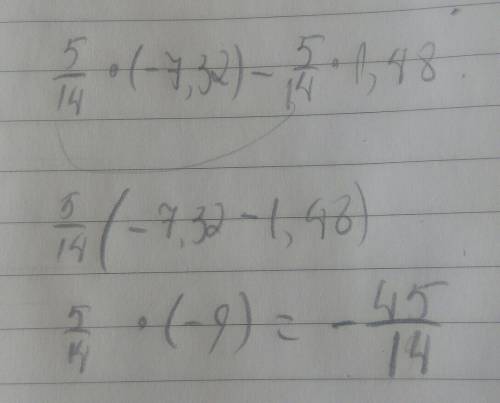 5/14 • (-7,32) - 5/14 • 1,48
5/14 (-7,32 - 1,48)
5/14 • (-9) = - 45/14